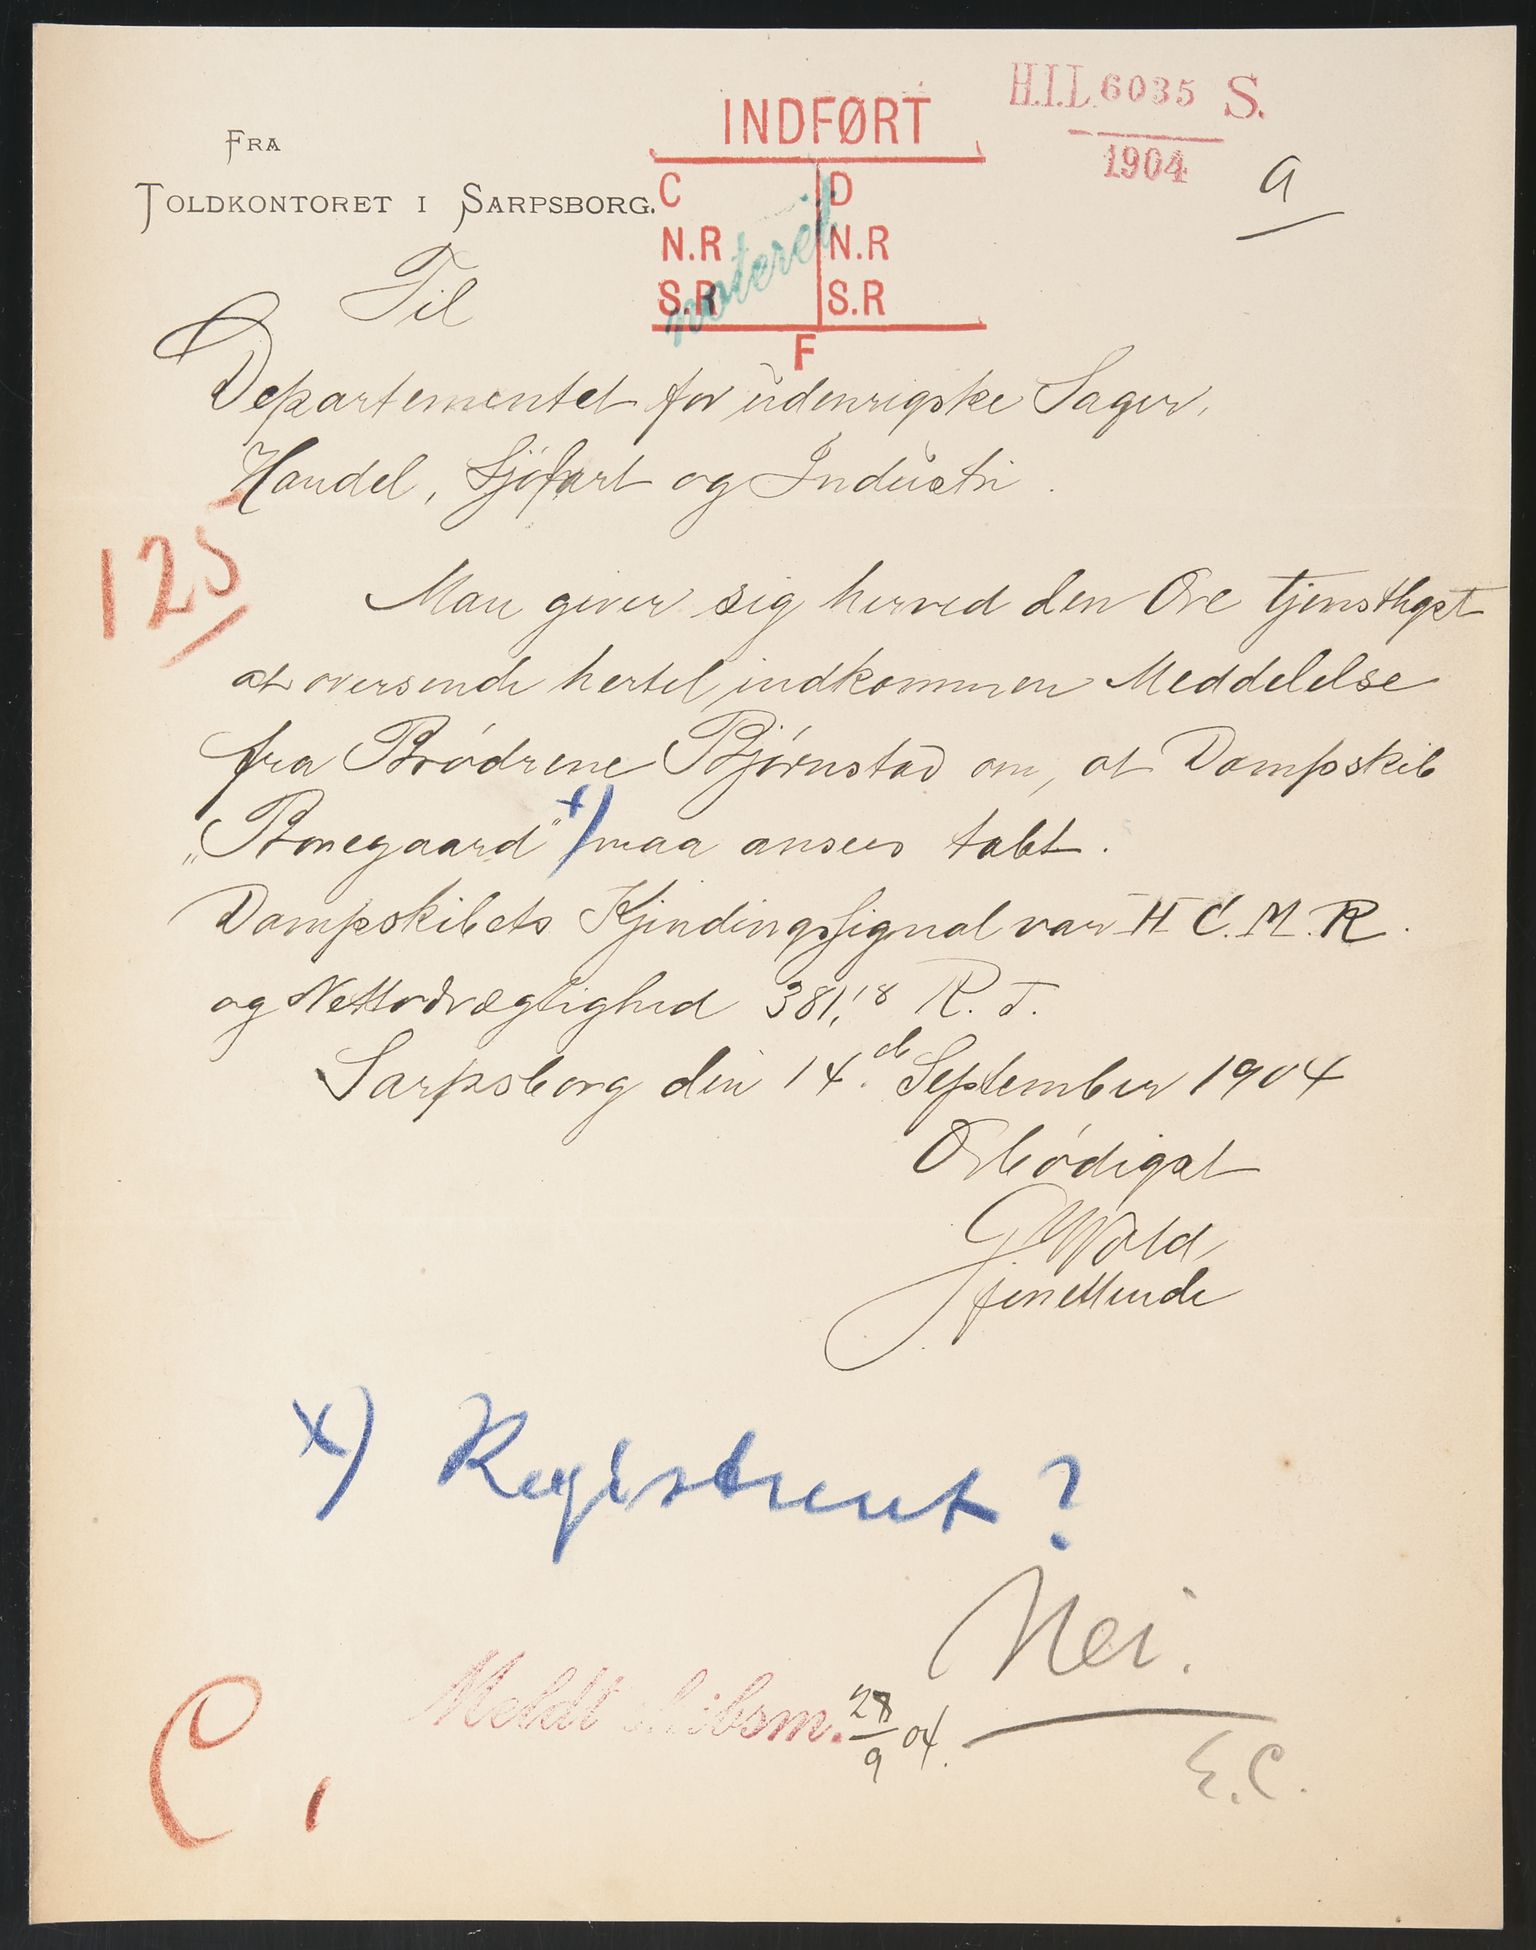 H.I.L. 6035 S.
1904
a
INDFØRT
C D
N.R N.R
S.R S.R
F
noteret
FRA
TOLDKONTORET I SARPSBORG.
Til
Departementet for udenrigske Sager,
Handel, Sjøfart og Industri.
125
Man giver sig herved den Ære tjenstligst
at oversende hertil indkommen Meddelelse
fra Brødrene Bjørnstad om, at Dampskib
„Borregaard" x) maa ansees tabt.
Dampskibets Kjendingssignal var H C. M. R.
og Nettodrægtighed 381,18 R. T.
Sarpsborg den 14.de September 1904
Ærbødigst
G Wold
fgnsttende
x) Registreret?
Nei.
Meldt skibsm. 28/9 04.
E.C.
C,